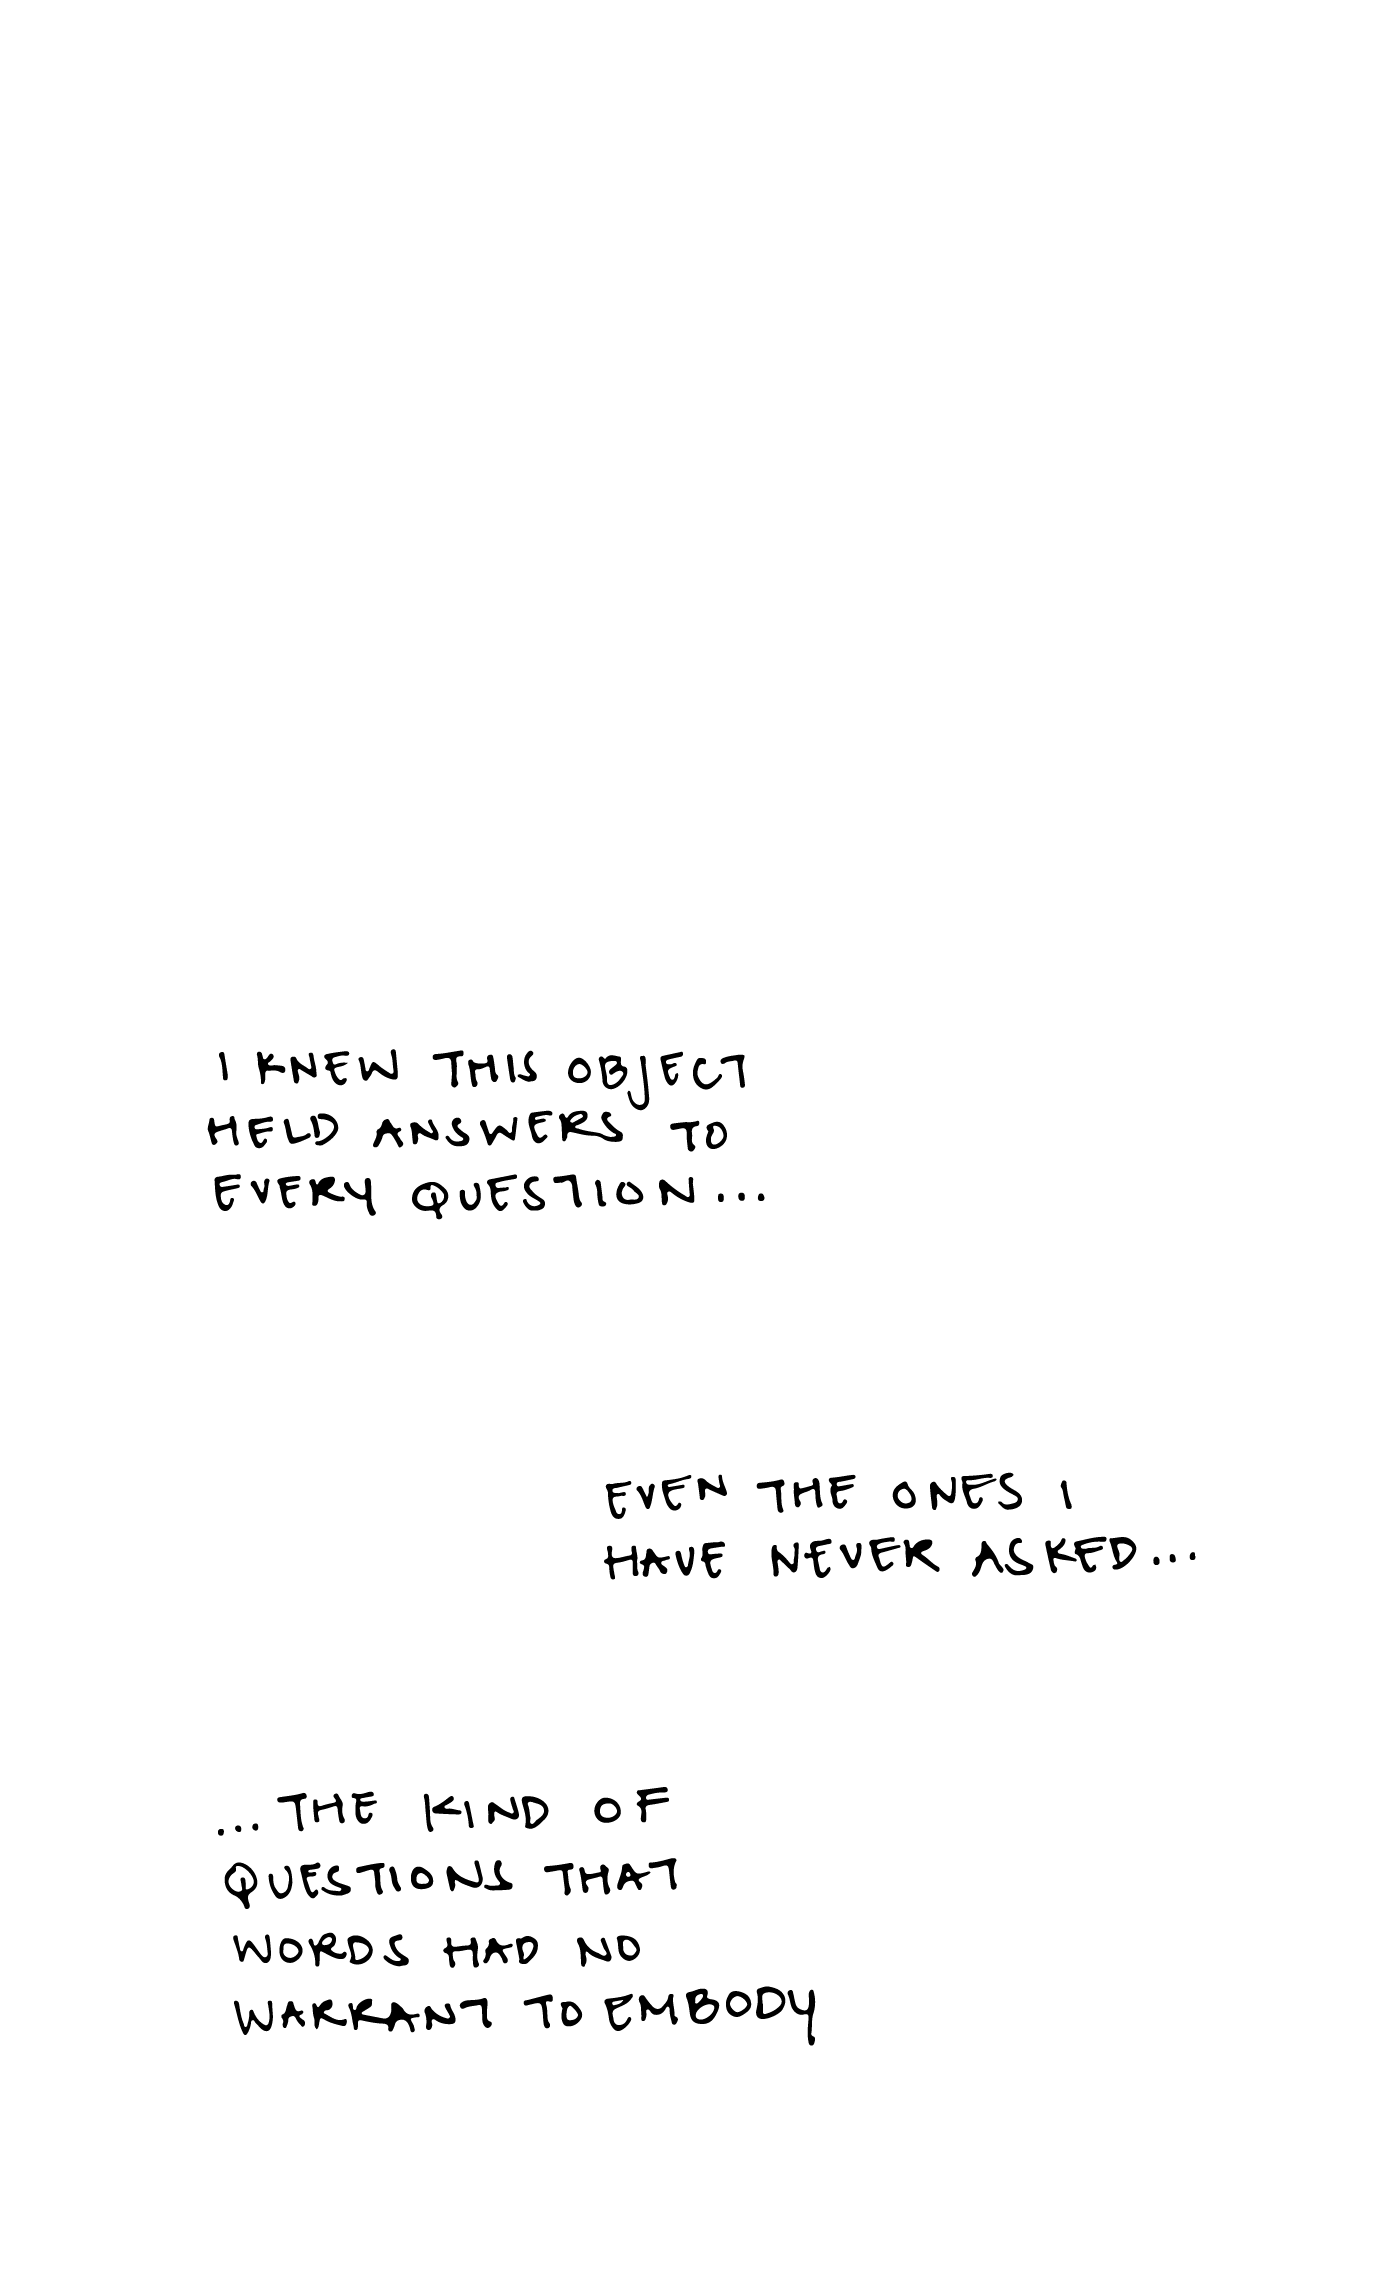 I KNEW THIS OBJECT
HELD ANSWERS TO
EVERY QUESTION...
EVEN THE ONES I
HAVE NEVER ASKED...
...THE KIND OF
QUESTIONS THAT
WORDS HAD NO
WARRANT TO EMBODY